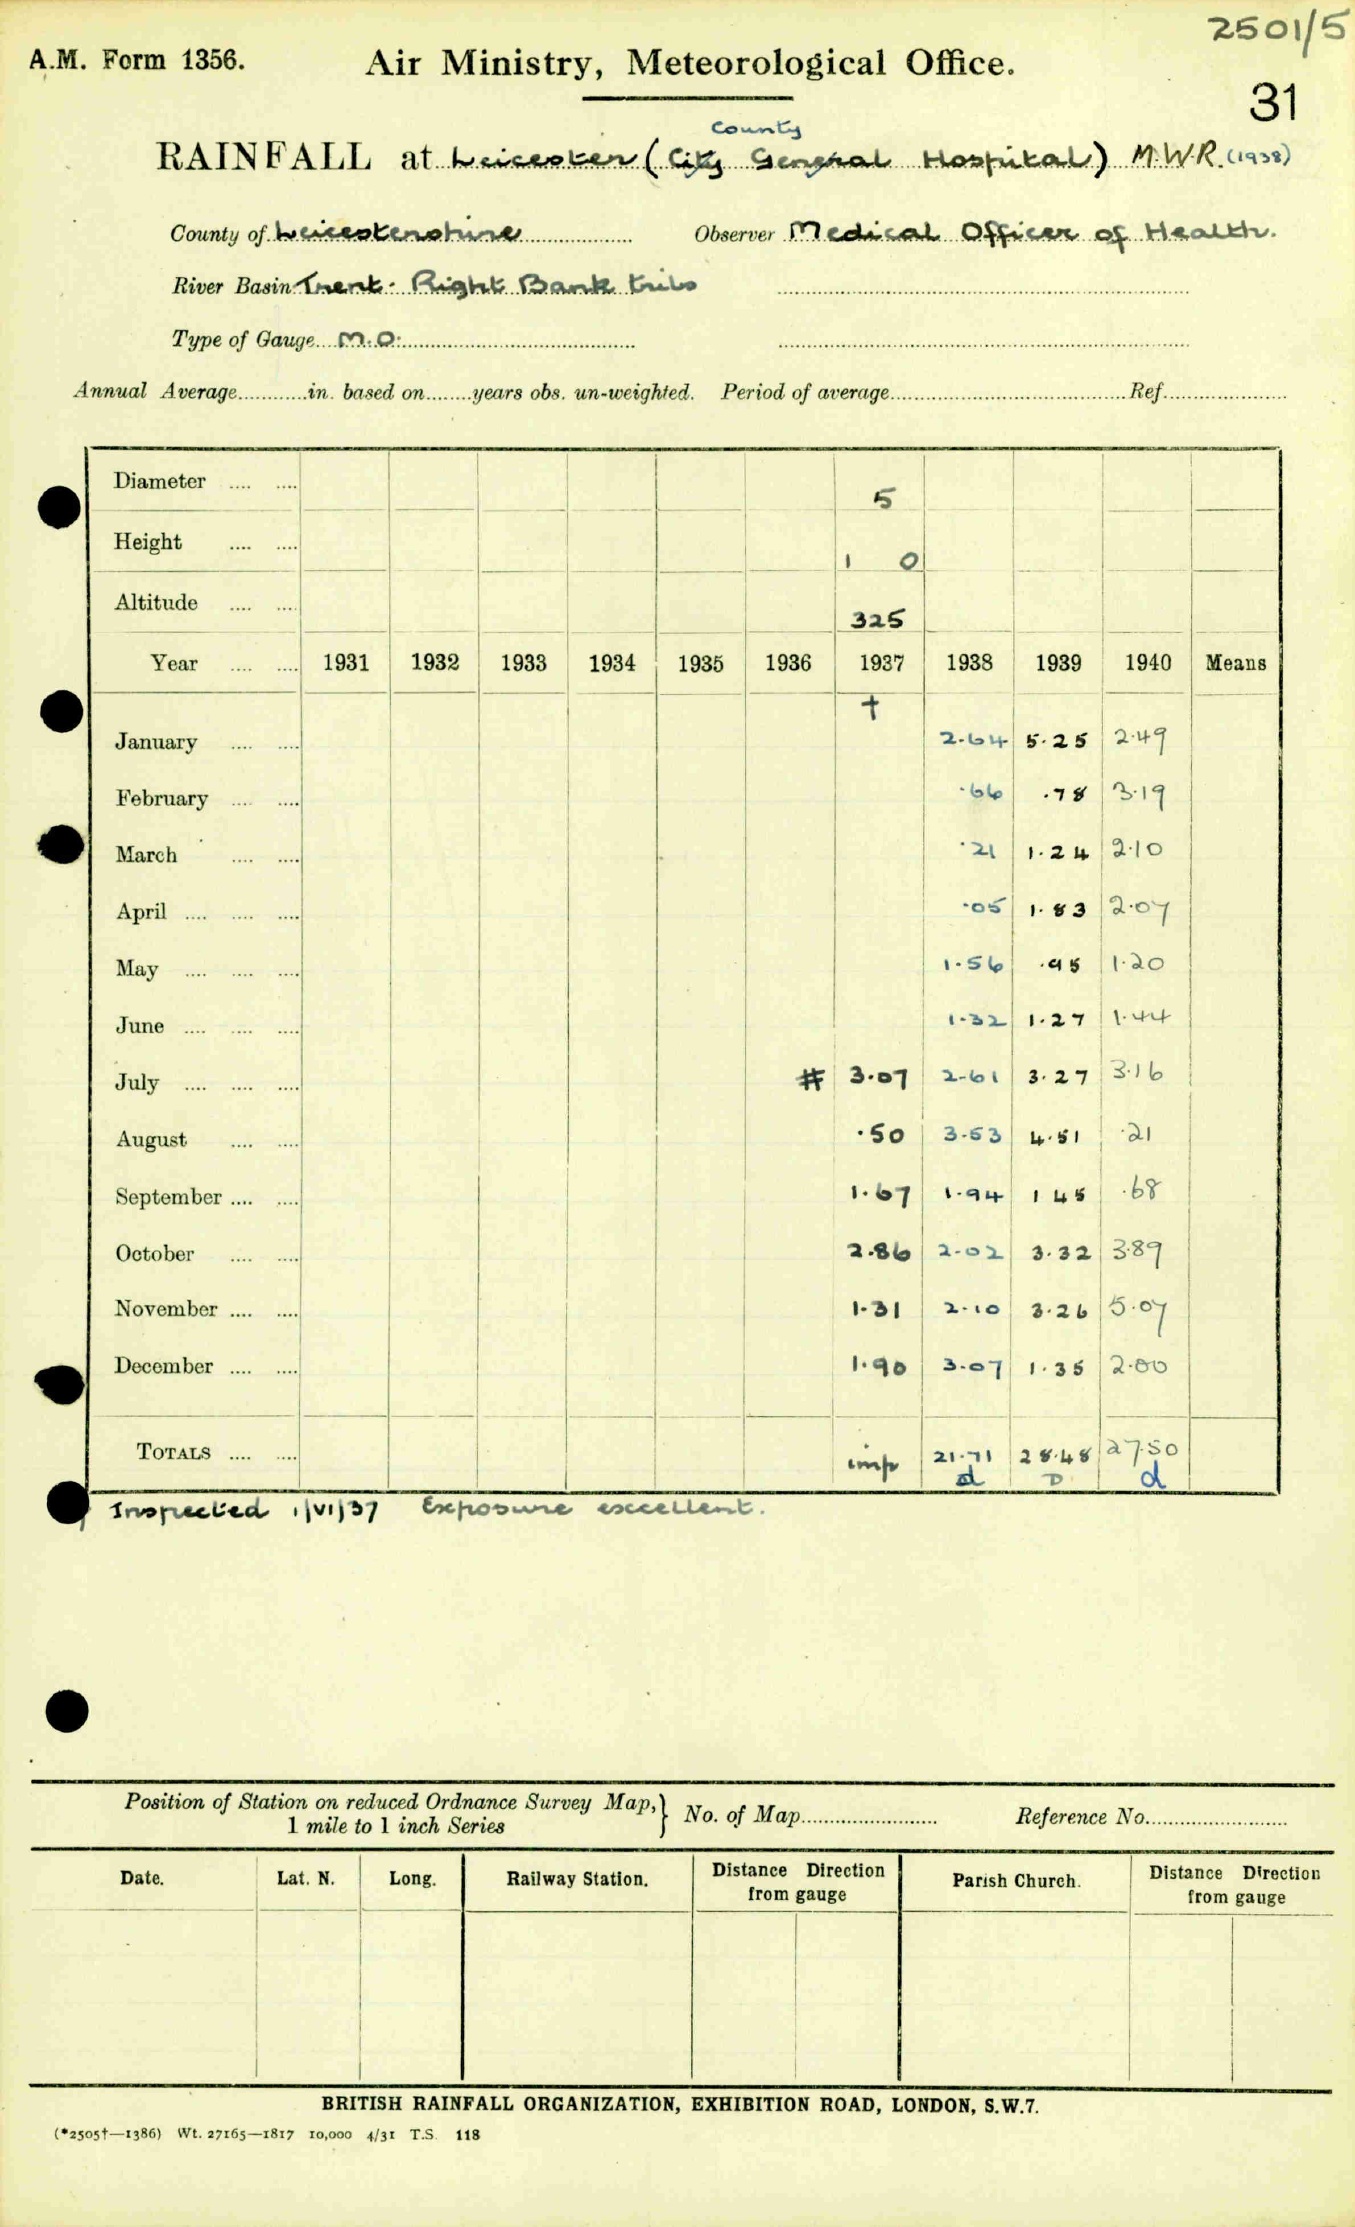 2501/5
A.M. Form 1356. Air Ministry, Meteorological Office.
31
County
RAINFALL at Leicester (City General Hospital) M.W.R. (1938)
County of Leicestershire Observer Medical Officer of Health.
River Basin Trent. Right Bank tribs
Type of Gauge M.O.
Annual Average............in. based on........years obs. un-weighted. Period of average............ Ref............
Diameter .... .... 5
Height .... .... 1 0
Altitude .... .... 325
Year .... .... 1931 1932 1933 1934 1935 1936 1937 1938 1939 1940 Means
†
January .... .... 2.64 5.25 2.49
February .... .... .66 .78 3.19
March .... .... .21 1.24 2.10
April .... .... .... .05 1.83 2.07
May .... .... .... 1.56 .95 1.20
June .... .... .... 1.32 1.27 1.44
July .... .... .... # 3.07 2.61 3.27 3.16
August .... .... .50 3.53 4.51 .21
September .... .... 1.67 1.94 1 45 .68
October .... .... 2.86 2.02 3.32 3.89
November .... .... 1.31 2.10 3.26 5.07
December .... .... 1.90 3.07 1.35 2.00
TOTALS .... .... imp 21.71 28.48 27.50
d D d
Inspected 1/VI/37 Exposure excellent.
Position of Station on reduced Ordnance Survey Map, } No. of Map............ Reference No............
1 mile to 1 inch Series
Date. Lat. N. Long. Railway Station. Distance Direction from gauge Parish Church. Distance Direction from gauge
BRITISH RAINFALL ORGANIZATION, EXHIBITION ROAD, LONDON, S.W.7.
(*2505†—1386) Wt. 27165—1817 10,000 4/31 T.S. 118